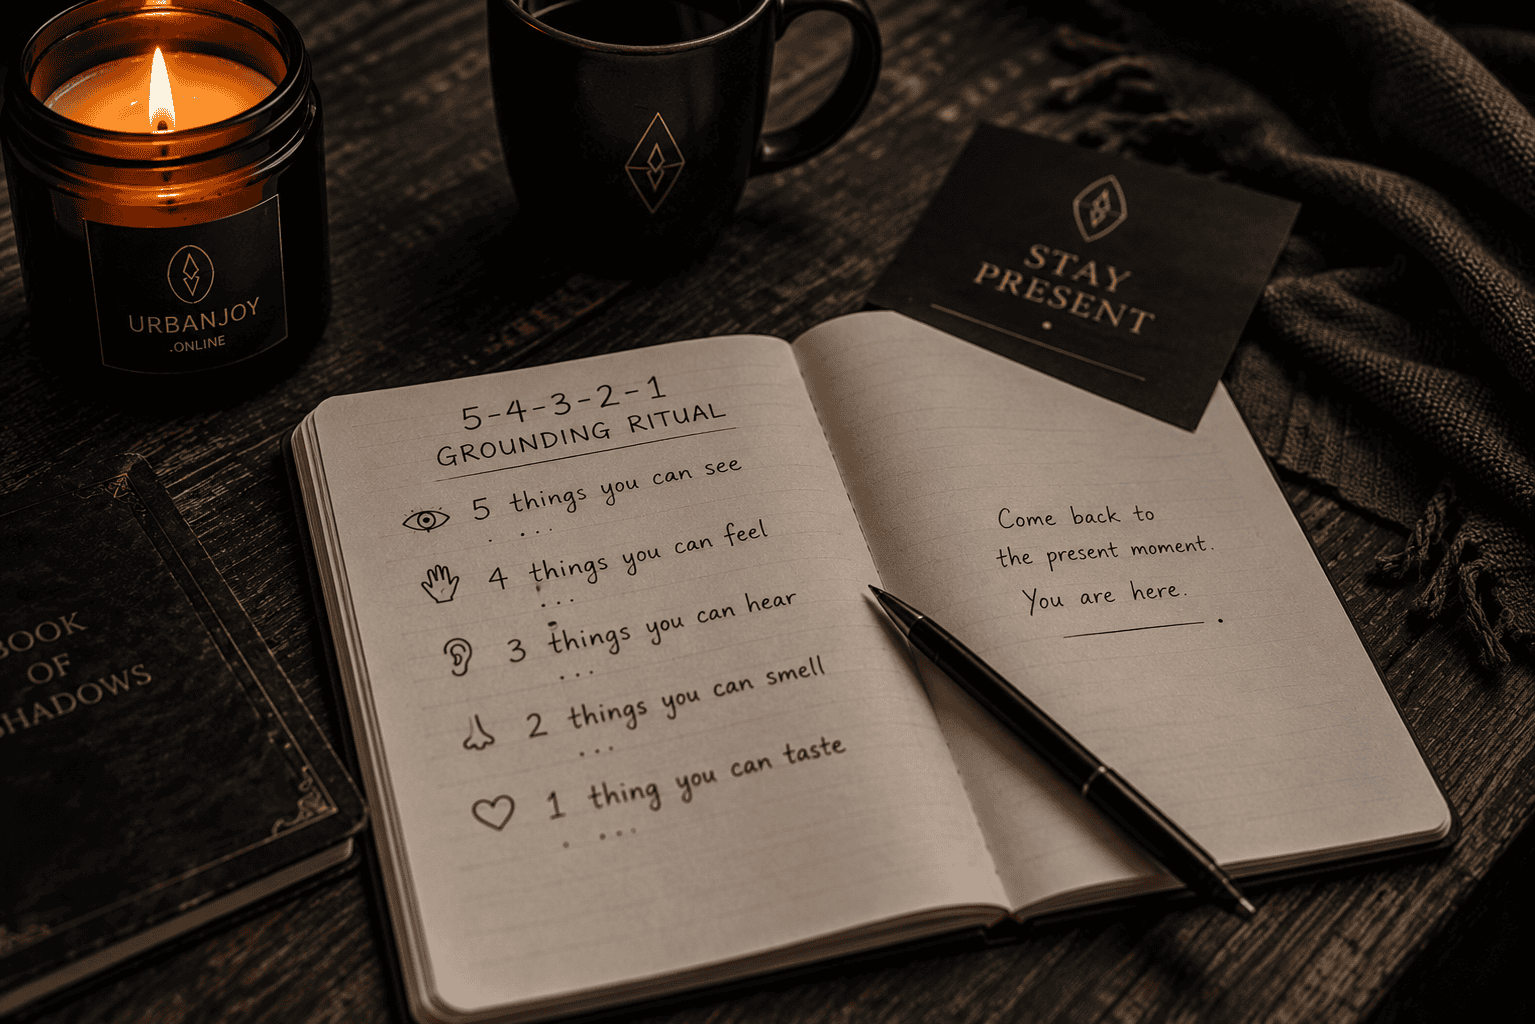 URBANJOY
.ONLINE
STAY
PRESENT
5-4-3-2-1
GROUNDING RITUAL
5 things you can see
...
4 things you can feel
...
3 things you can hear
...
2 things you can smell
...
1 thing you can taste
...
Come back to
the present moment.
You are here.
BOOK
OF
SHADOWS